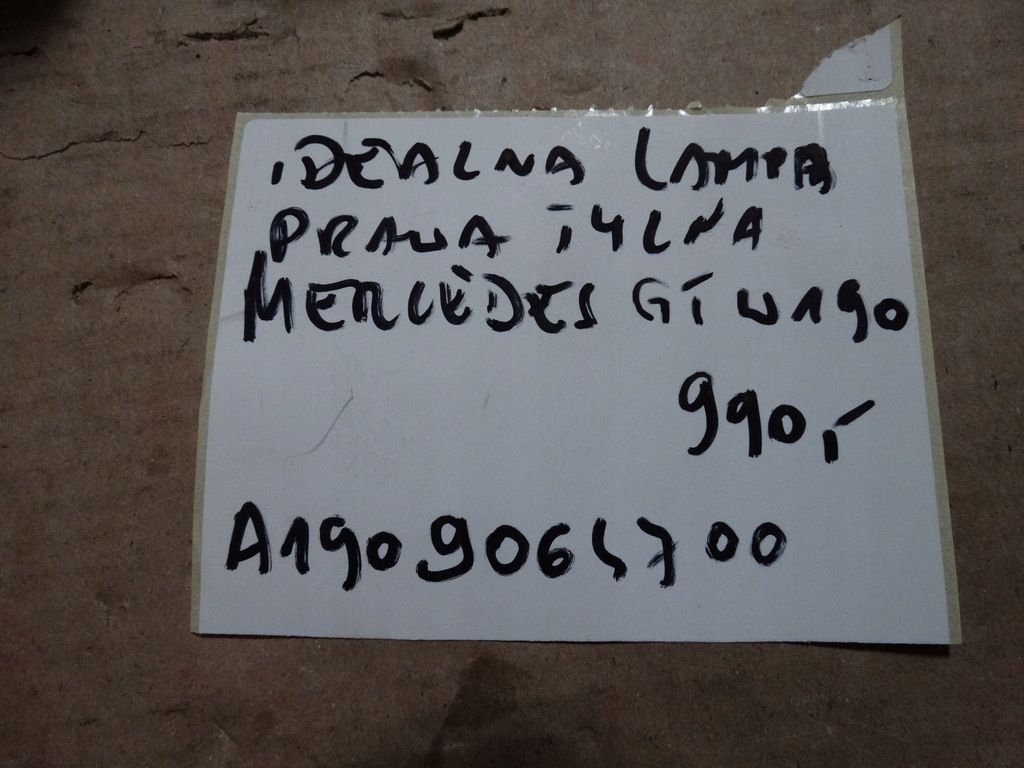 IDEALNA LAMPA
PRAWA TYLNA
MERCEDES GT W190
990,-
A1909065700